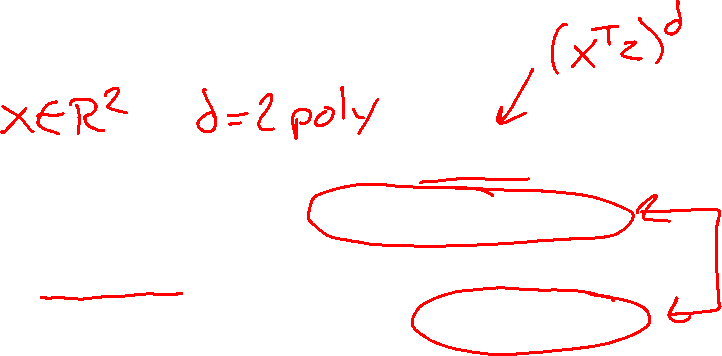 (xᵀz)ᵈ
x∈ℝ² d=2 poly